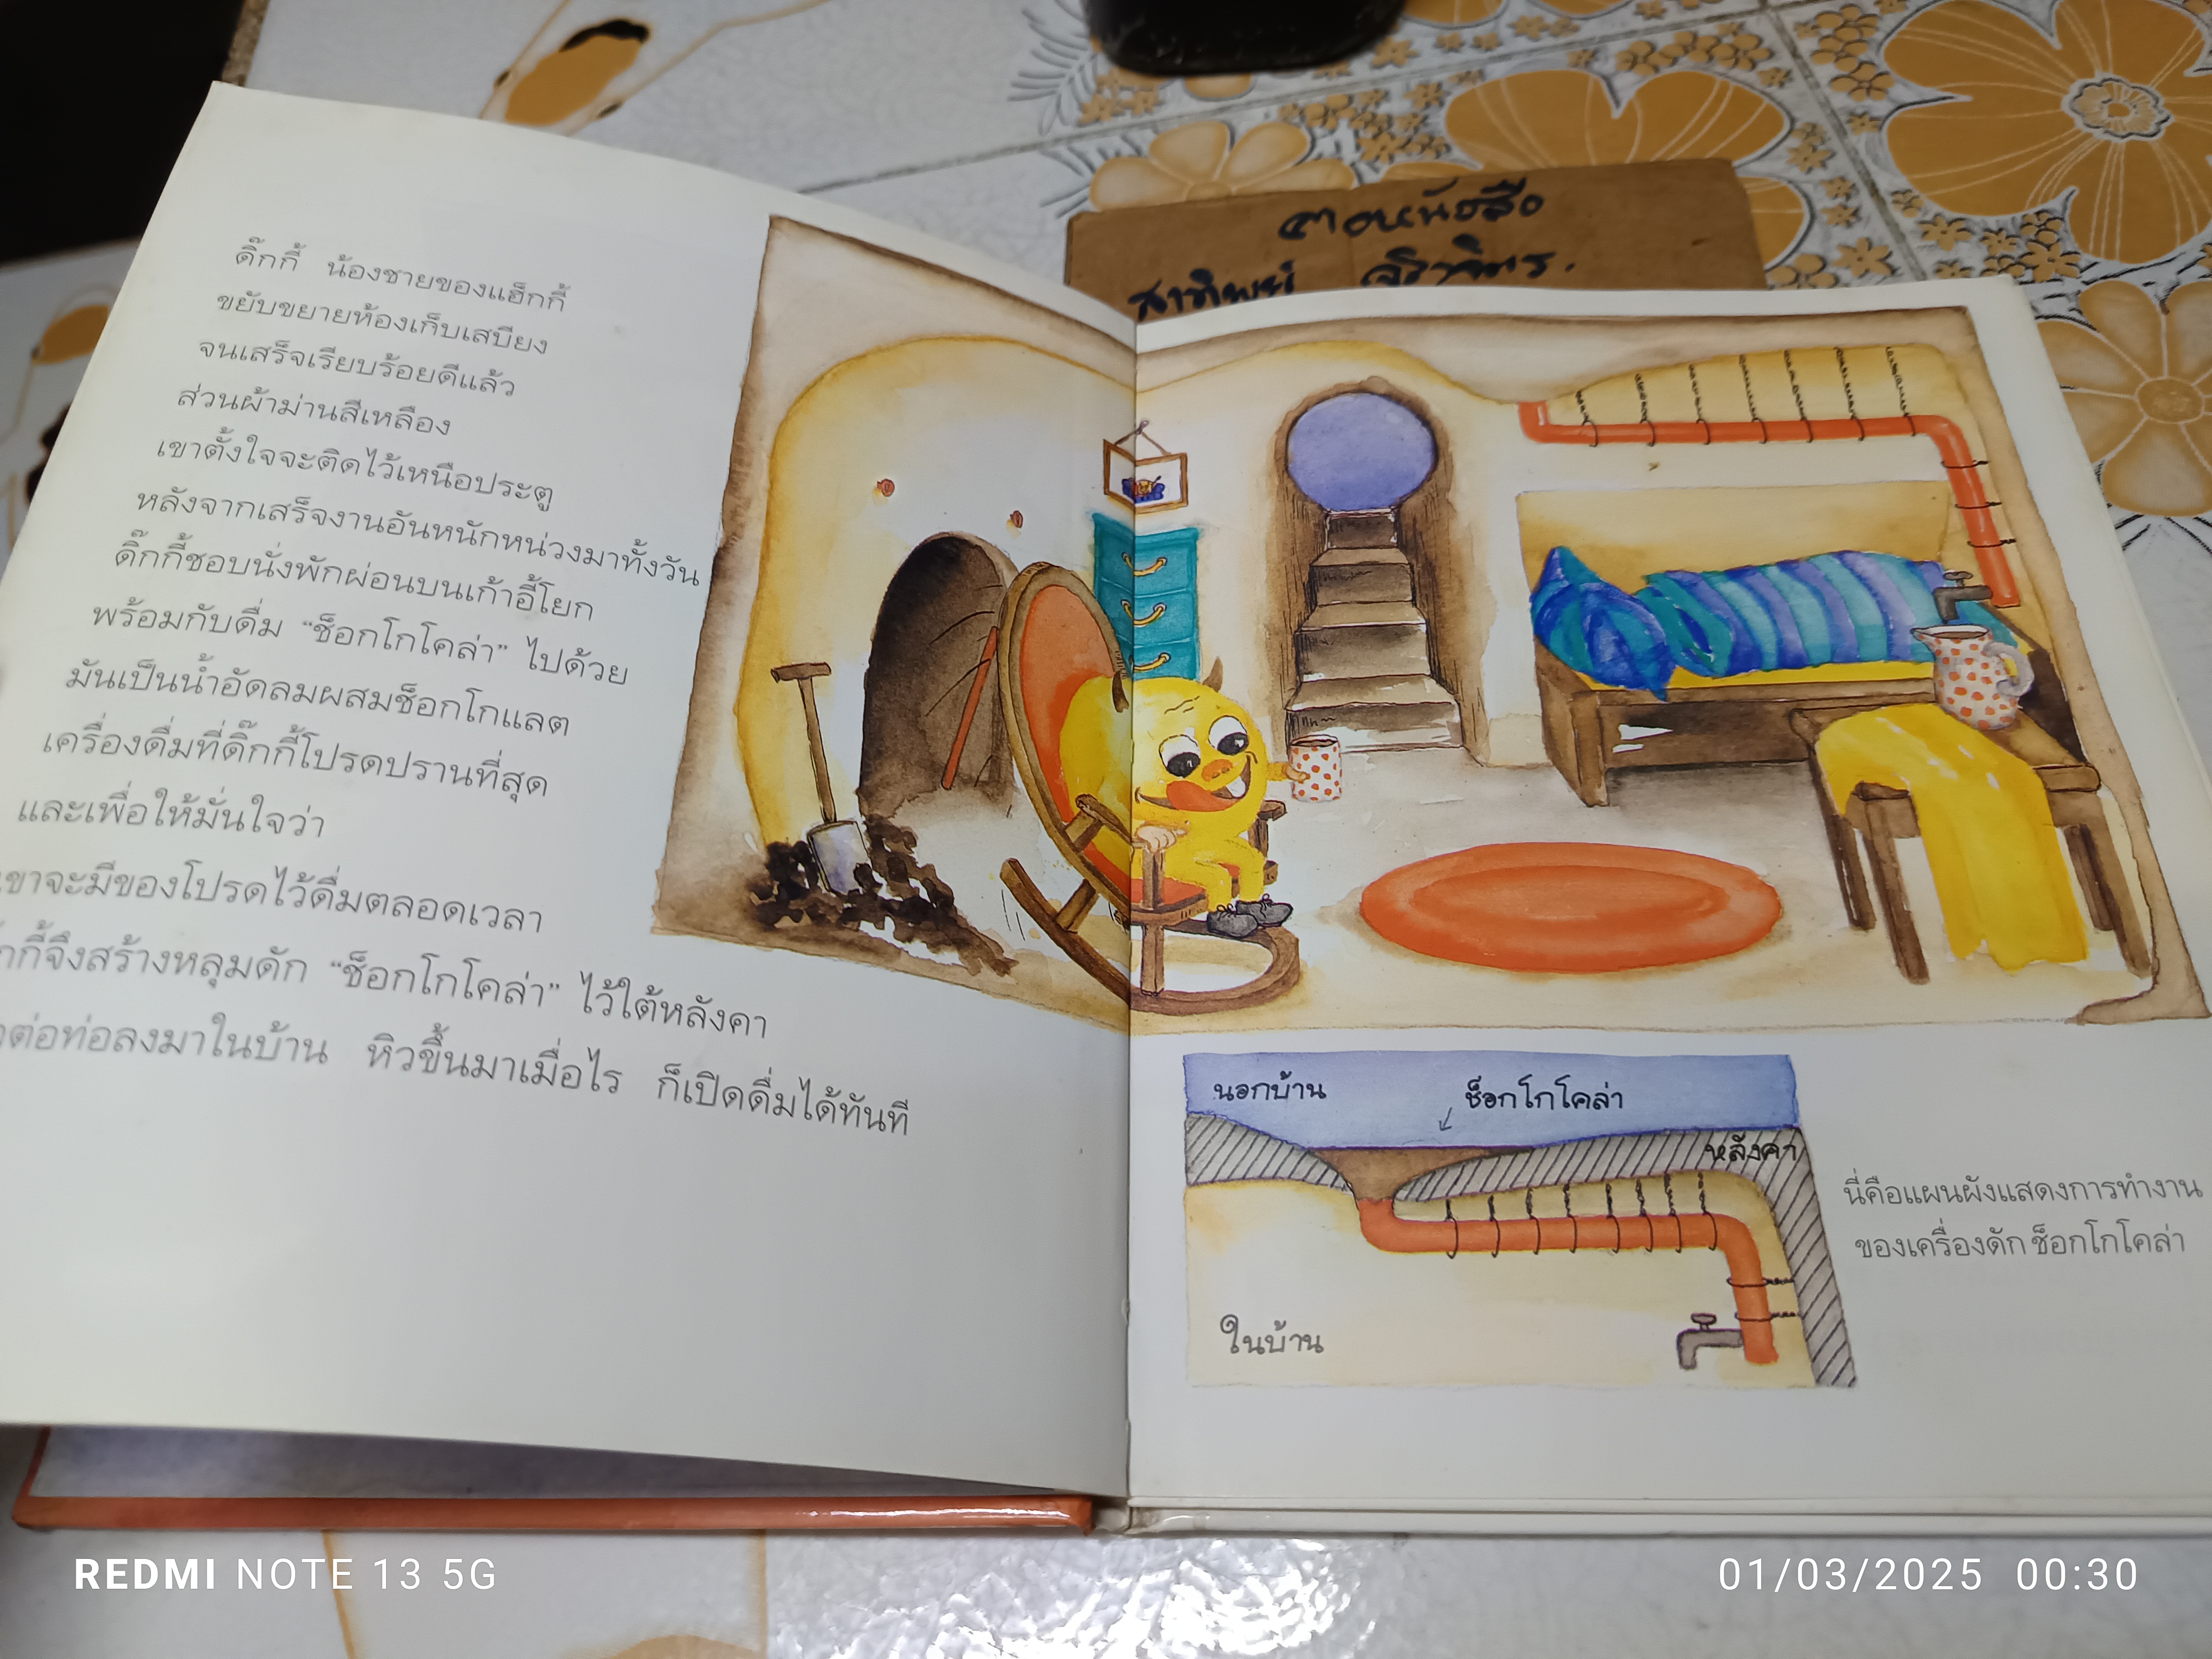 ดิ๊กกี้ น้องชายของแฮ็กกี้
ขยับขยายห้องเก็บเสบียง
จนเสร็จเรียบร้อยดีแล้ว
ส่วนผ้าม่านสีเหลือง
เขาตั้งใจจะติดไว้เหนือประตู
หลังจากเสร็จงานอันหนักหน่วงมาทั้งวัน
ดิ๊กกี้ชอบนั่งพักผ่อนบนเก้าอี้โยก
พร้อมกับดื่ม “ช็อกโกโคล่า” ไปด้วย
มันเป็นน้ำอัดลมผสมช็อกโกแลต
เครื่องดื่มที่ดิ๊กกี้โปรดปรานที่สุด
และเพื่อให้มั่นใจว่า
เขาจะมีของโปรดไว้ดื่มตลอดเวลา
กกี้จึงสร้างหลุมดัก “ช็อกโกโคล่า” ไว้ใต้หลังคา
ต่อท่อลงมาในบ้าน หิวขึ้นมาเมื่อไร ก็เปิดดื่มได้ทันที
นอกบ้าน
ช็อกโกโคล่า
หลังคา
ในบ้าน
นี่คือแผนผังแสดงการทำงาน
ของเครื่องดักช็อกโกโคล่า
REDMI NOTE 13 5G
01/03/2025 00:30